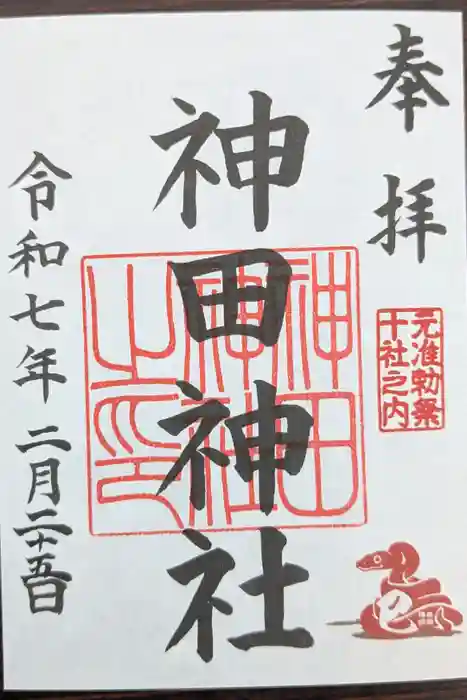 奉拝
元准勅祭
十社之内
神田神社
神田
神社
之印
令和七年二月二十五日